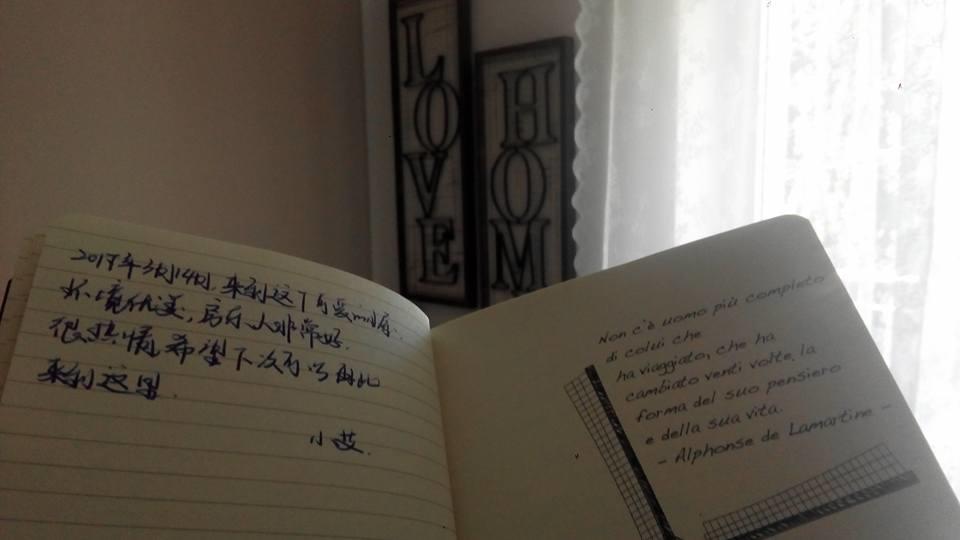 LOVE
HOM
2019年3月14日,来到这个可爱的小屋.
环境优美,房东人非常好.
很热情,希望下次可以再次
来到这里.
小艾.
Non c'è uomo più completo
di colui che
ha viaggiato, che ha
cambiato venti volte la
forma del suo pensiero
e della sua vita.
- Alphonse de Lamartine -